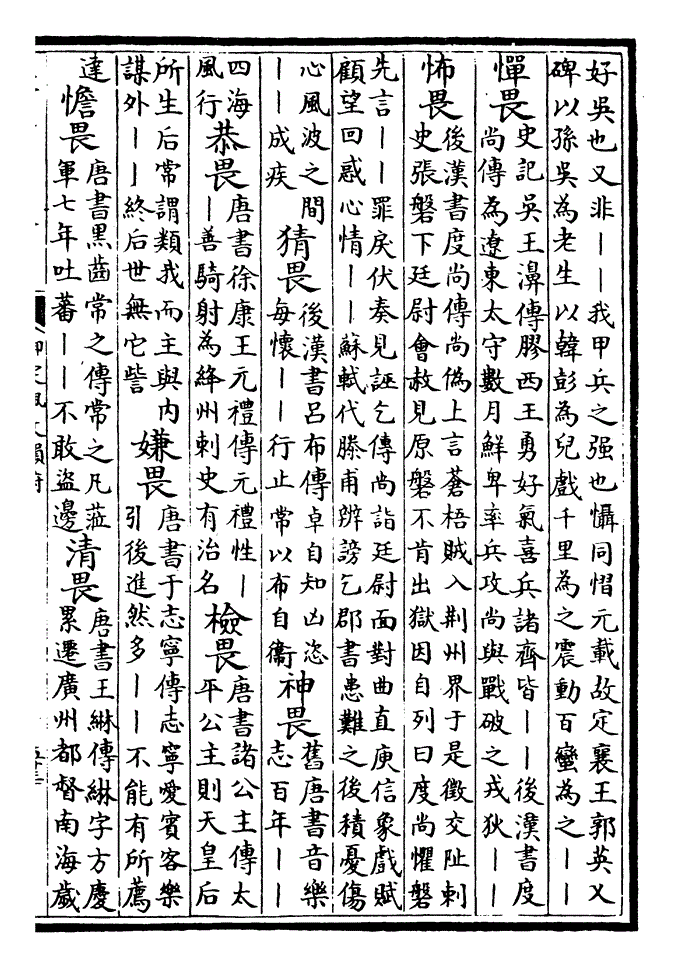 好吳也又非丨丨我甲兵之强也懾同慴元載故定襄王郭英乂
碑以孫吳為老生以韓彭為兒戲千里為之震動百蠻為之丨丨
憚畏
史記吳王濞傳膠西王勇好氣喜兵諸齊皆丨丨後漢書度
尚傳為遼東太守數月鮮卑率兵攻尚與戰破之戎狄丨丨
怖畏
後漢書度尚傳尚偽上言蒼梧賊入荆州界于是徵交阯刺
史張磐下廷尉會赦見原磐不肯出獄因自列曰度尚懼磐
先言丨丨罪戾伏奏見誣乞傳尚詣廷尉面對曲直庾信象戲賦
顧望回惑心情丨丨蘇軾代滕甫辨謗乞郡書患難之後積憂傷
心風波之間
丨丨成疾
猜畏
後漢書呂布傳卓自知凶恣
每懷丨丨行止常以布自衞
神畏
舊唐書音樂
志百年丨丨
四海
風行
恭畏
唐書徐康王元禮傳元禮性丨
丨善騎射為絳州刺史有治名
檢畏
唐書諸公主傳太
平公主則天皇后
所生后常謂類我而主與内
謀外丨丨終后世無它訾
嫌畏
唐書于志寧傳志寧愛賓客樂
引後進然多丨丨不能有所薦
達
憺畏
唐書黑齒常之傳常之凡涖
軍七年吐蕃丨丨不敢盜邊
清畏
唐書王綝傳綝字方慶
累遷廣州都督南海歲